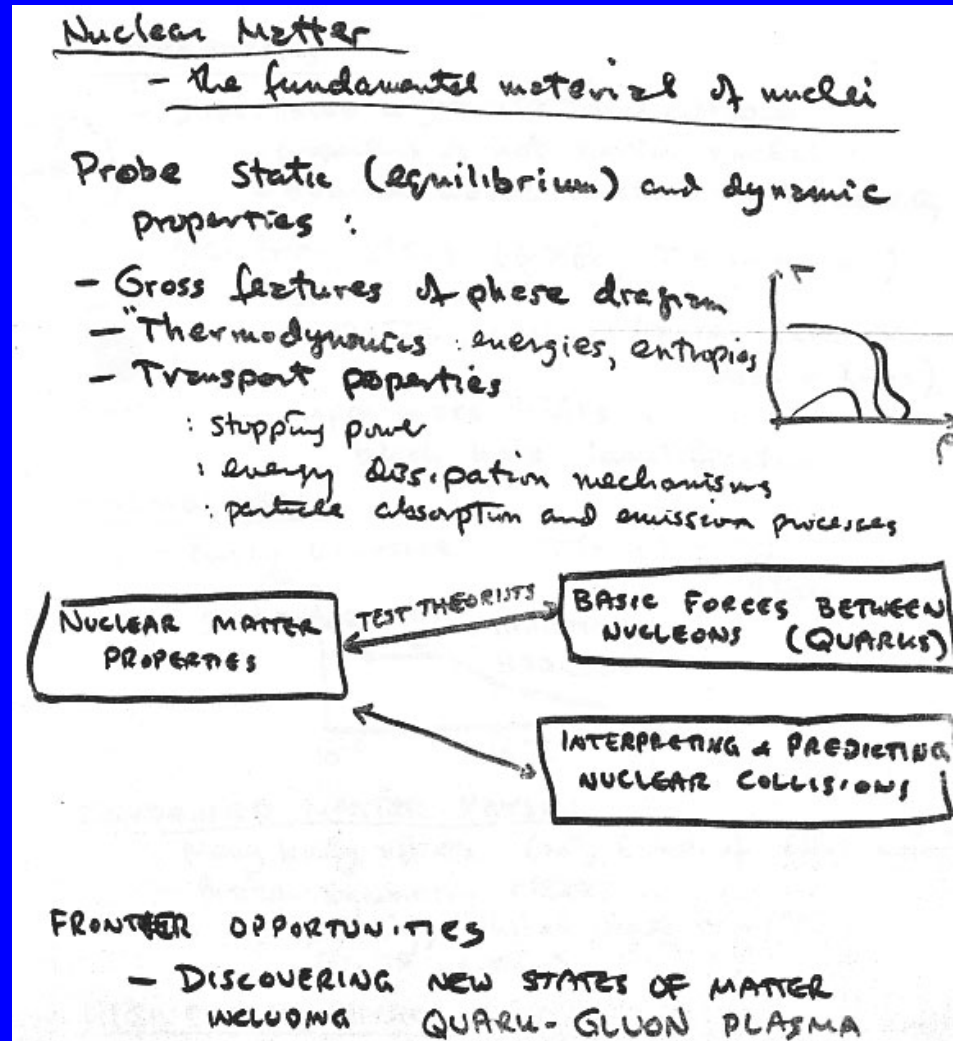 Nuclear Matter
- the fundamental material of nuclei
Probe static (equilibrium) and dynamic
properties :
- Gross features of phase diagram
- "Thermodynamics : energies, entropies
- Transport poperties
: stopping power
: energy dissipation mechanisms
: particle absorption and emission processes
T
ρ
NUCLEAR MATTER
PROPERTIES
TEST THEORISTS
BASIC FORCES BETWEEN
NUCLEONS (QUARKS)
INTERPRETING & PREDICTING
NUCLEAR COLLISIONS
FRONTIER OPPORTUNITIES
- DISCOVERING NEW STATES OF MATTER
INCLUDING QUARK-GLUON PLASMA